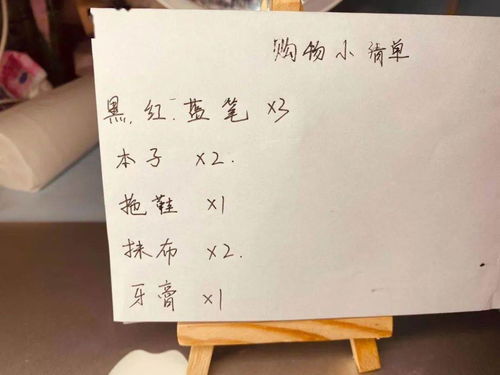 购物小清单
黑、红、蓝笔 ×3
本子 ×2.
拖鞋 ×1
抹布 ×2.
牙膏 ×1